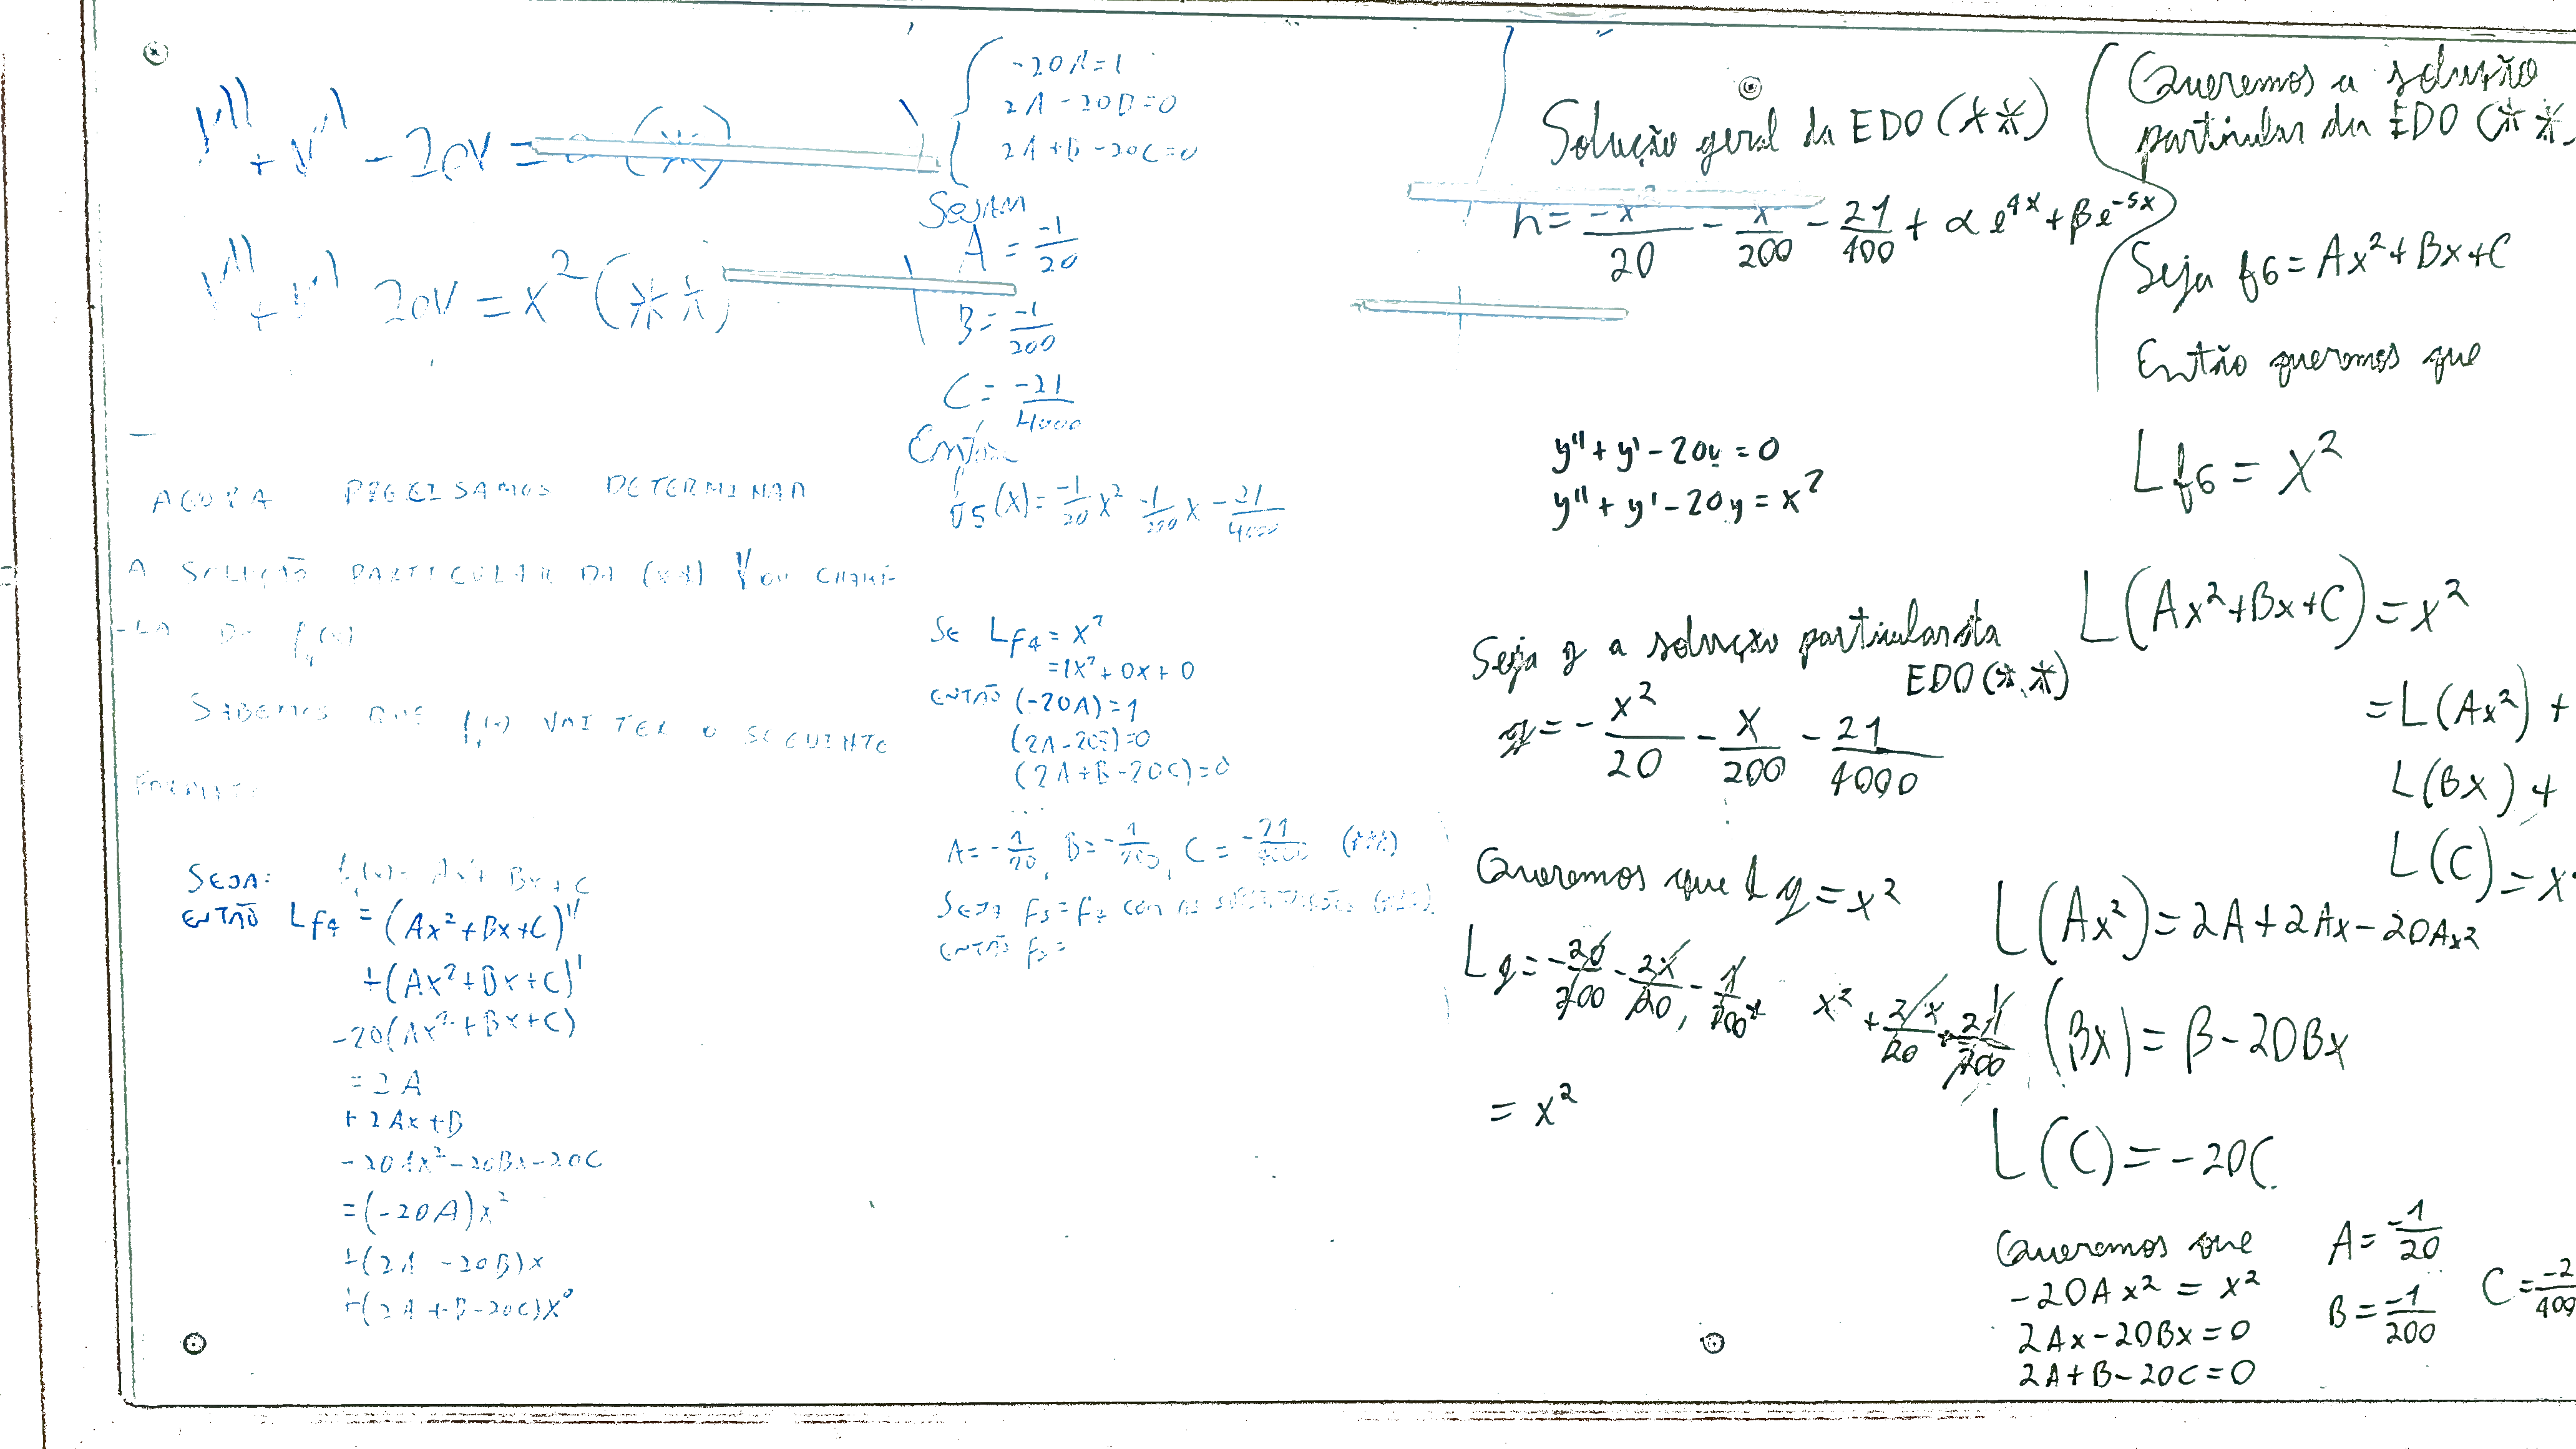 y'' + y' - 20y = 0 (*)
y'' + y' 20y = x² (**)
AGORA PRECISAMOS DETERMINAR
A SOLUÇÃO PARTICULAR DA (**) VOU CHAMÁ-
-LA DE f₄(x)
SABEMOS QUE f₄(x) VAI TER O SEGUINTE
FORMATO
SEJA: f₄(x) = Ax² + Bx + C
ENTÃO Lf₄ = (Ax²+Bx+C)''
+(Ax²+Bx+C)'
-20(Ax²+Bx+C)
= 2A
+ 2Ax + B
-20Ax² - 20Bx - 20C
= (-20A)x²
+(2A - 20B)x
+(2A + B - 20C)x⁰
-20A = 1
2A - 20B = 0
2A + B - 20C = 0
SEJAM
A = -1/20
B = -1/200
C = -21/4000
ENTÃO
f5(x) = -1/20 x² -1/200 x - 21/4000
SE Lf₄ = x²
= 1x² + 0x + 0
ENTÃO (-20A) = 1
(2A - 20B) = 0
(2A + B - 20C) = 0
...
A = -1/20, B = -1/200, C = -21/4000 (***)
SEJA f₅ = f₄ COM AS SUBSTITUIÇÕES (***).
ENTÃO f₅ =
Solução geral da EDO (**)
h = -x²/20 - x/200 - 21/400 + α e^4x + β e^-5x
y'' + y' - 20y = 0
y'' + y' - 20y = x²
Seja g a solução particular da
EDO (**)
g = - x²/20 - x/200 - 21/4000
Queremos que Lg = x²
Lg = -20/200 - 2x/20 - 1/200 x² + 2x/20 + 21/200
= x²
Queremos a solução
particular da EDO (**
Seja f6 = Ax² + Bx + C
Então queremos que
Lf6 = x²
L(Ax²+Bx+C) = x²
= L(Ax²) +
L(Bx) +
L(C) = x
L(Ax²) = 2A + 2Ax - 20Ax²
(Bx) = B - 20Bx
L(C) = -20C
Queremos que
-20Ax² = x²
2Ax - 20Bx = 0
2A + B - 20C = 0
A = -1/20
B = -1/200
C = -2/400